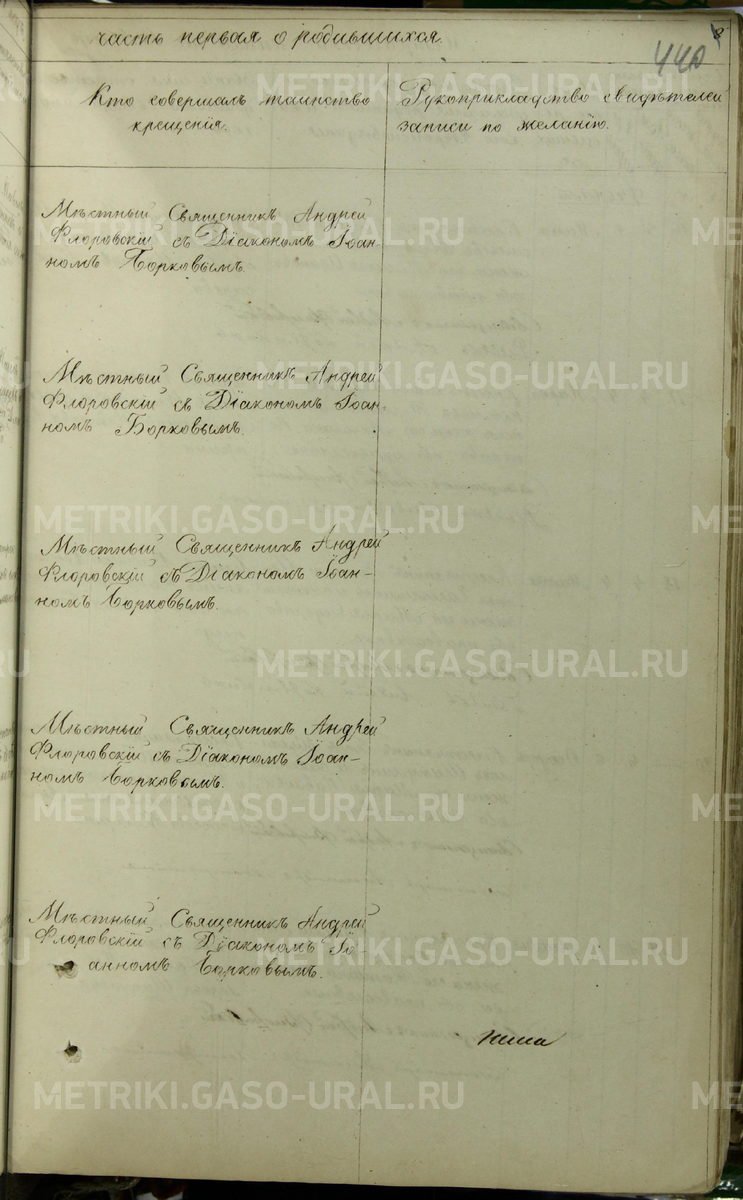 часть первая о родившихся.
440
Кто совершалъ таинство
крещенія.
Рукоприкладство свидѣтелей
записи по желанію.
Мѣстный Священникъ Андрей
Флоровскій съ Діакономъ Іоан-
номъ Борковымъ.
Мѣстный Священникъ Андрей
Флоровскій съ Діакономъ Іоан-
номъ Борковымъ.
Мѣстный Священникъ Андрей
Флоровскій съ Діакономъ Іоан-
номъ Борковымъ.
Мѣстный Священникъ Андрей
Флоровскій съ Діакономъ Іоан-
номъ Борковымъ.
Мѣстный Священникъ Андрей
Флоровскій съ Діакономъ Іо-
анномъ Борковымъ.
METRIKI.GASO-URAL.RU